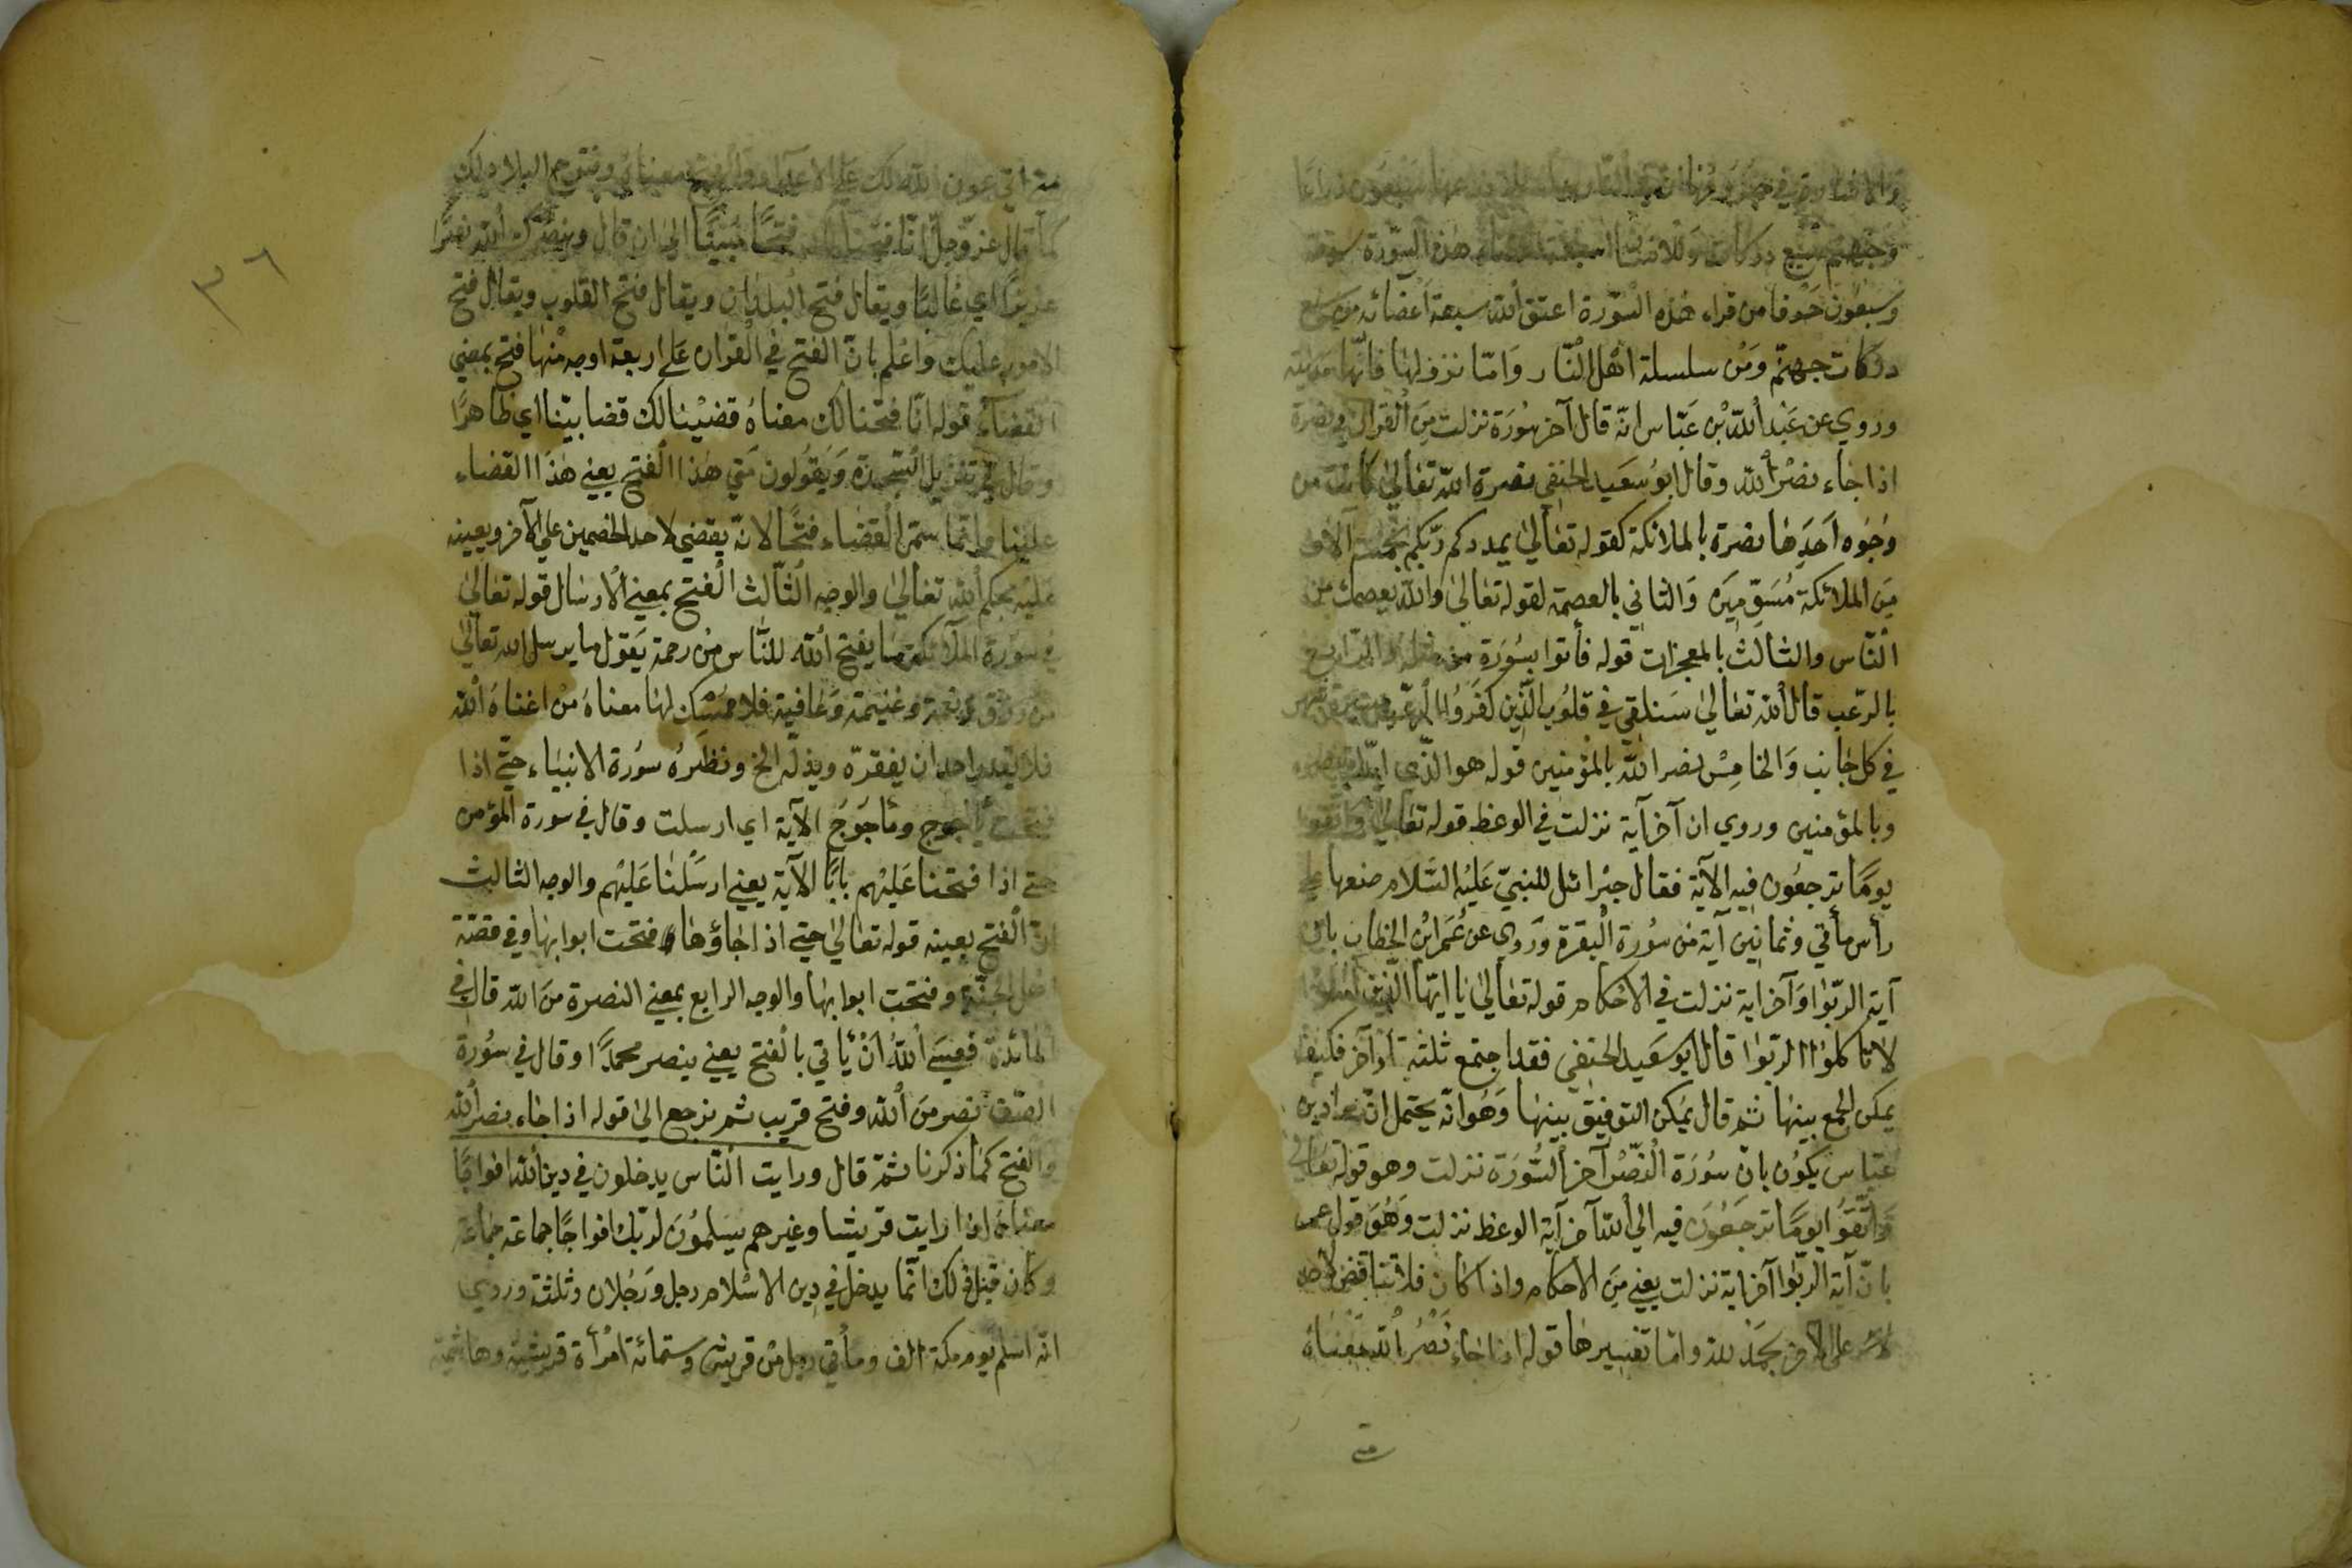 وجهنم سبع دركات وللانسان سبعة اعضاء هذه السورة سبعة
وسبعون حرفا من قراء هذه السورة اعتق الله سبعة اعضائه من سبع
دركات جهنم ومن سلسلة اهل النار واما نزولها فانها مدنية
وروي عن عبد الله بن عباس انه قال آخر سورة نزلت من القرآن
اذا جاء نصر الله وقال ابو سعيد الحنفي نصرة الله تعالى كانت من
وجوه احدها نصرة بالملائكة كقوله تعالى يمددكم ربكم بخمسة الاف
من الملائكة مسومين والثاني بالعصمة لقوله تعالى والله يعصمك من
الناس والثالث بالمعجزات قوله فأتوا بسورة من مثله والرابع
بالرعب قال الله تعالى سنلقي في قلوب الذين كفروا الرعب
في كل جانب والخامس نصر الله بالمؤمنين قوله هو الذي ايدك بنصره
وبالمؤمنين وروي ان آخر آية نزلت في الوعظ قوله تعالى واتقوا
يوما ترجعون فيه الآية فقال جبرائل للنبي عليه السلام ضعها على
رأس مأتي وثمانين آية من سورة البقرة وروي عن عمر ابن الخطاب بان
آية الربوا وآخر اية نزلت في الاحكام قوله تعالى يا ايها الذين آمنوا
لا تاكلوا الربوا قال ابو سعيد الحنفي فقد اجتمع ثلثة اواخر فكيف
يمكن الجمع بينها ثم قال يمكن التوفيق بينها وهو انه يحتمل ان مراد بن
عباس يكون بان سورة النصر آخر السورة نزلت وهو قوله تعالى
واتقوا يوما ترجعون فيه الى الله آخر آية الوعظ نزلت وهو قول عمر
بان آية الربوا آخر اية نزلت يعني من الاحكام واذا كان فلا تناقض لاحد
على الآخر بحمد لله واما تفسيرها قوله اذا جاء نصر الله معناه
متى
٣٦
متى اتى عون الله لك على الاعداء والفتح معناه وفتوح البلاد لك
كما قال عز وجل انا فتحنا لك فتحا مبينا الى ان قال وينصرك الله نصرا
عزيزا اي غالبا ويقال فتح البلدان ويقال فتح القلوب ويقال فتح
الامور عليك واعلم بان الفتح في القرآن على اربعة اوجه منها فتح بمعنى
القضاء قوله انا فتحنا لك معناه قضينا لك قضا بينا اي ظاهرا
وقال في تنزيل السجدة ويقولون متى هذا الفتح يعني هذا القضاء
علينا وانما سمى القضاء فتحا لانه يقضي لاحد الخصمين على الآخر ويعينه
عليه بحكم الله تعالى والوجه الثالث الفتح بمعنى الارسال قوله تعالى
في سورة الملائكة ما يفتح الله للناس من رحمة يقول ما يرسل الله تعالى
من رزق ونعمة وغنيمة وعافية فلا ممسك لها معناه من اغناه الله
فلا يقدر احد ان يفقره ويذله الخ ونظيره سورة الانبياء حتى اذا
فتحت يأجوج ومأجوج الآية اي ارسلت وقال في سورة المؤمن
حتى اذا فتحنا عليهم بابا الآية يعني ارسلنا عليهم والوجه الثالث
ان الفتح بعينه قوله تعالى حتى اذا جاؤها فتحت ابوابها وفي قصة
اهل الجنة وفتحت ابوابها والوجه الرابع بمعنى النصرة من الله قال في
المائدة فعسى الله ان يأتي بالفتح يعني ينصر محمدا وقال في سورة
الصف نصر من الله وفتح قريب ثم نرجع الى قوله اذا جاء نصر الله
والفتح كما ذكرنا ثم قال ورايت الناس يدخلون في دين الله افواجا
معناه اذا رايت قريشا وغيرهم يسلمون لربك افواجا جماعة جماعة
وكان قبل ذلك انما يدخل في دين الاسلام رجل ورجلان وثلثة وروي
انه اسلم يوم مكة الف ومأتي رجل من قريش وستمائة امرأة قريشية وهاشمية